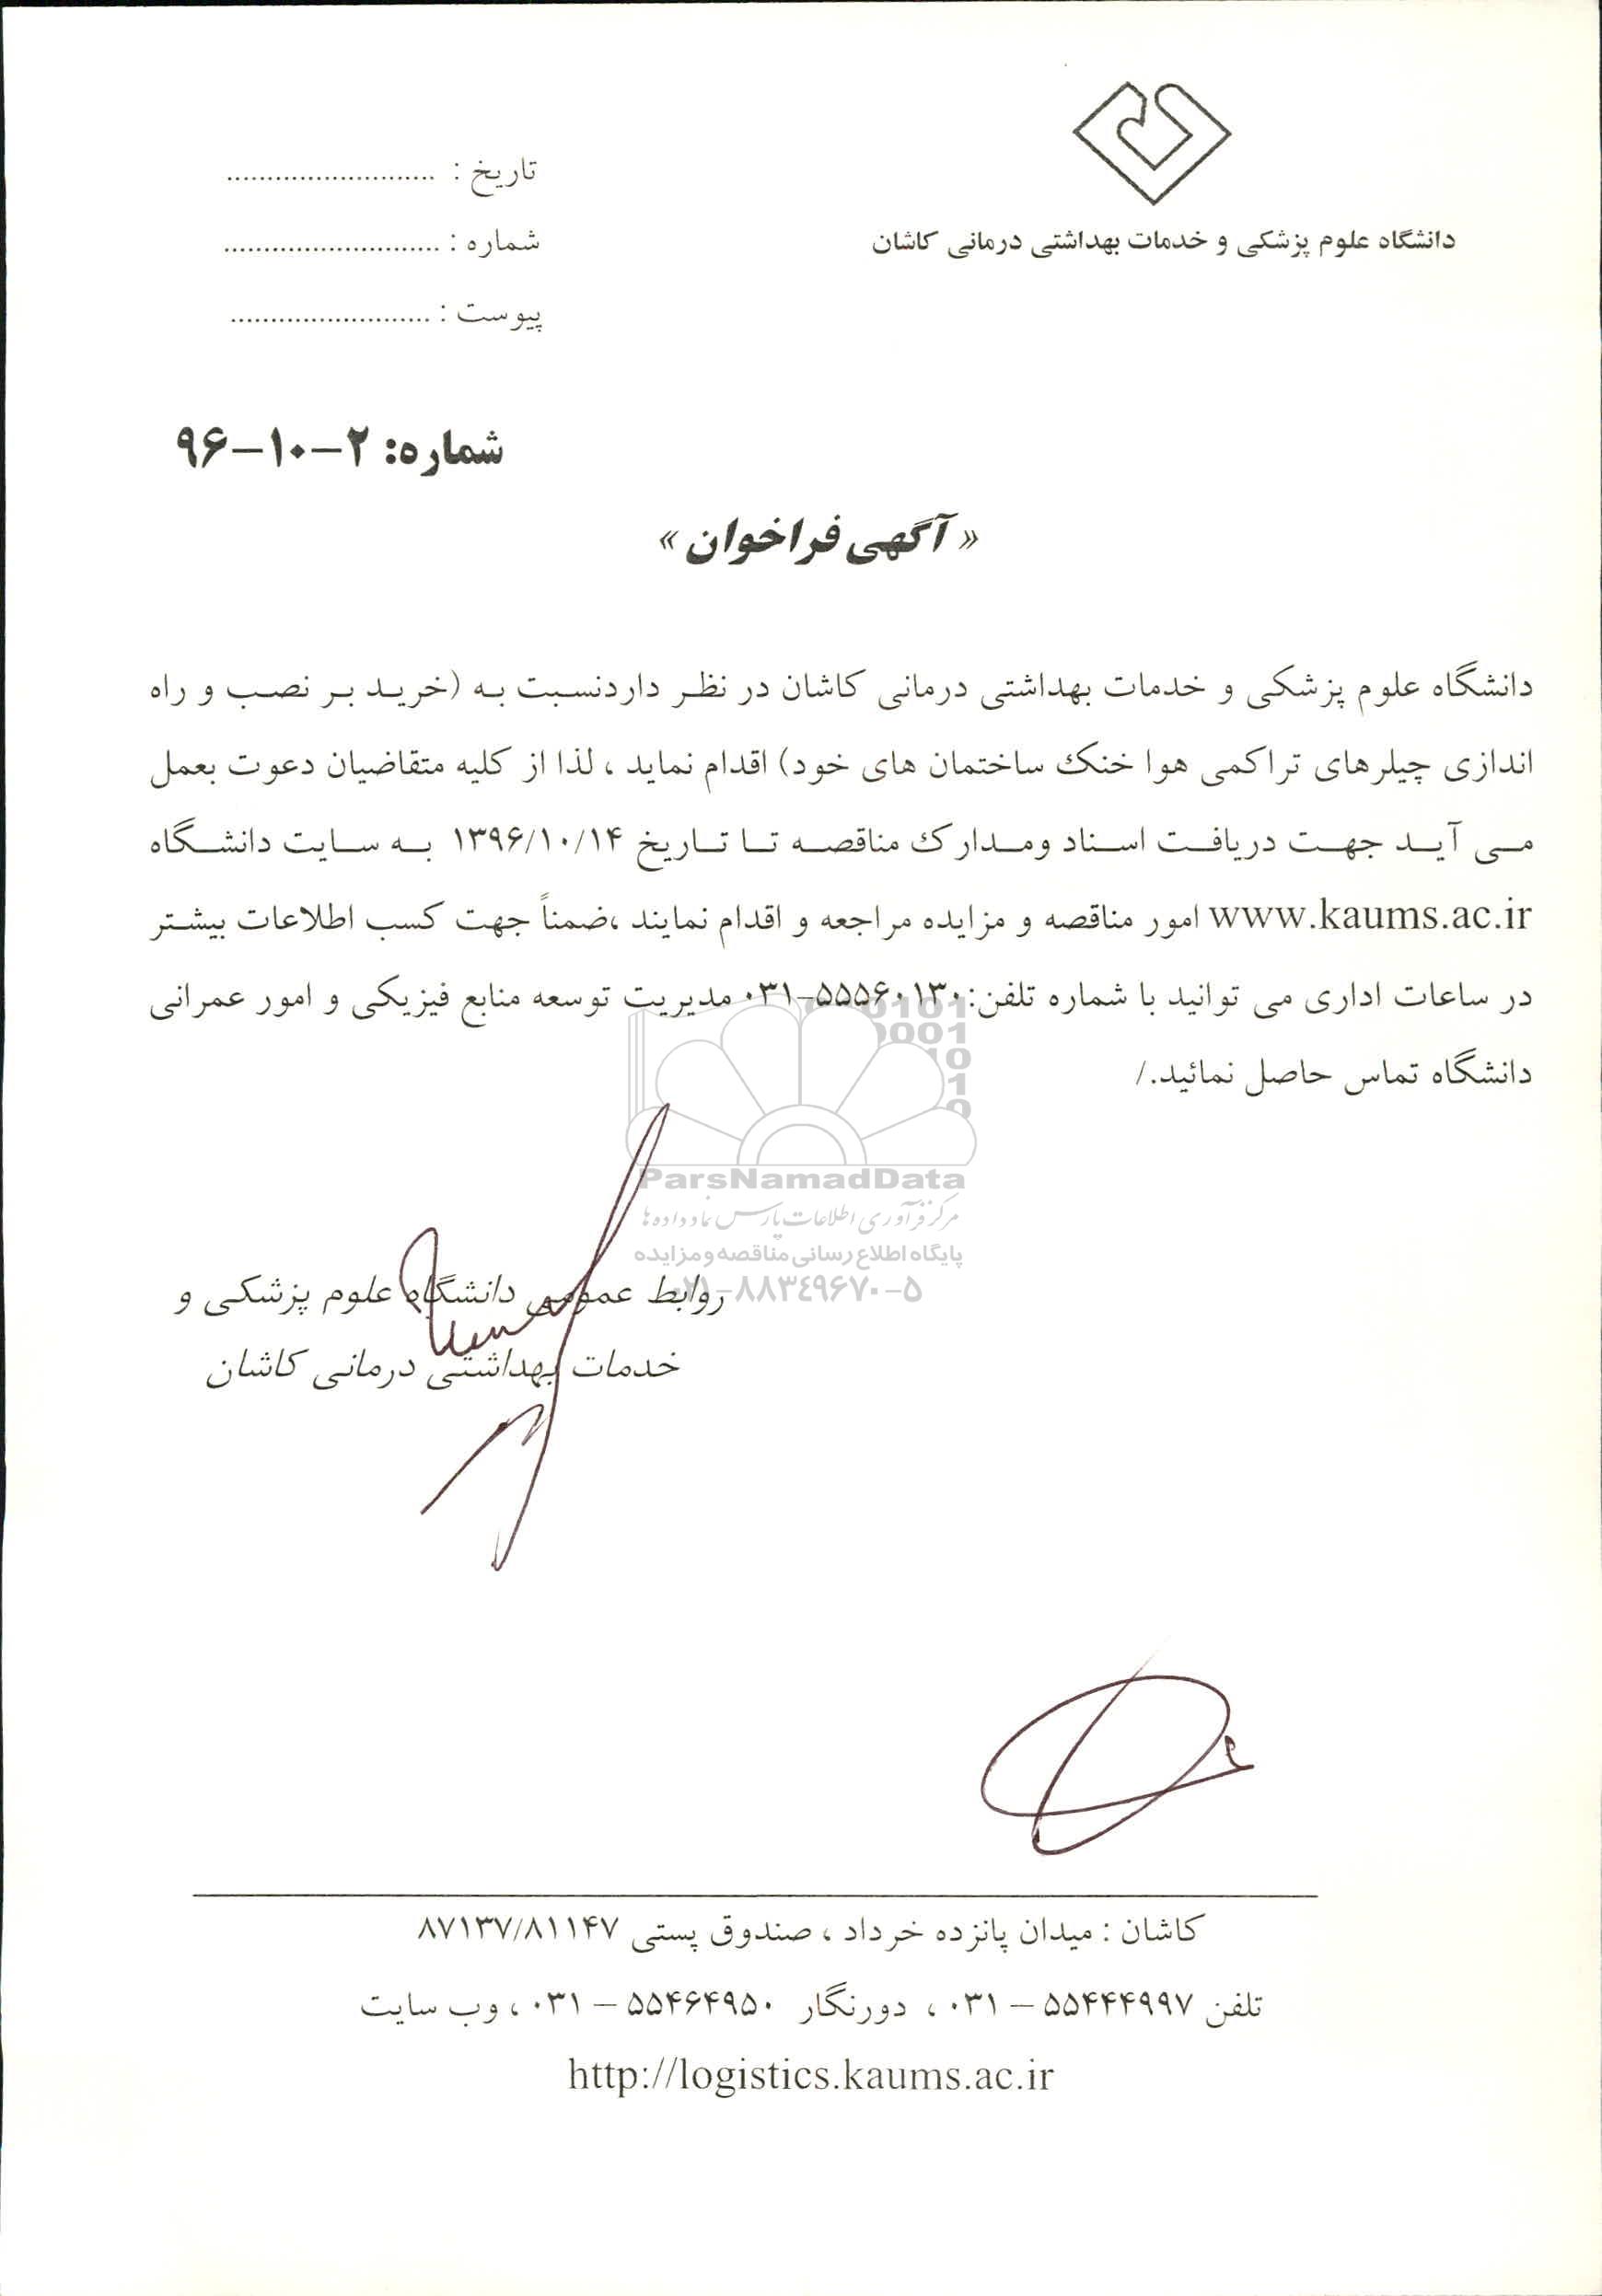 دانشگاه علوم پزشکی و خدمات بهداشتی درمانی کاشان
تاریخ : ..........................
شماره : ...........................
پیوست : .........................
شماره: ۲-۱۰-۹۶
« آگهی فراخوان »
دانشگاه علوم پزشکی و خدمات بهداشتی درمانی کاشان در نظر داردنسبت به (خرید بر نصب و راه
اندازی چیلرهای تراکمی هوا خنک ساختمان های خود) اقدام نماید ، لذا از کلیه متقاضیان دعوت بعمل
می آید جهت دریافت اسناد ومدارک مناقصه تا تاریخ ۱۳۹۶/۱۰/۱۴ به سایت دانشگاه
www.kaums.ac.ir امور مناقصه و مزایده مراجعه و اقدام نمایند ،ضمناً جهت کسب اطلاعات بیشتر
در ساعات اداری می توانید با شماره تلفن:۵۵۵۶۰۱۳۰-۰۳۱ مدیریت توسعه منابع فیزیکی و امور عمرانی
دانشگاه تماس حاصل نمائید./
ParsNamadData
مرکز فرآوری اطلاعات پارس نماد داده ها
پایگاه اطلاع رسانی مناقصه و مزایده
۰۲۱-۸۸۳٤۹۶۷۰-۵
روابط عمومی دانشگاه علوم پزشکی و
خدمات بهداشتی درمانی کاشان
کاشان : میدان پانزده خرداد ، صندوق پستی ۸۷۱۳۷/۸۱۱۴۷
تلفن ۵۵۴۴۴۹۹۷ – ۰۳۱ ، دورنگار ۵۵۴۶۴۹۵۰ – ۰۳۱ ، وب سایت
http://logistics.kaums.ac.ir